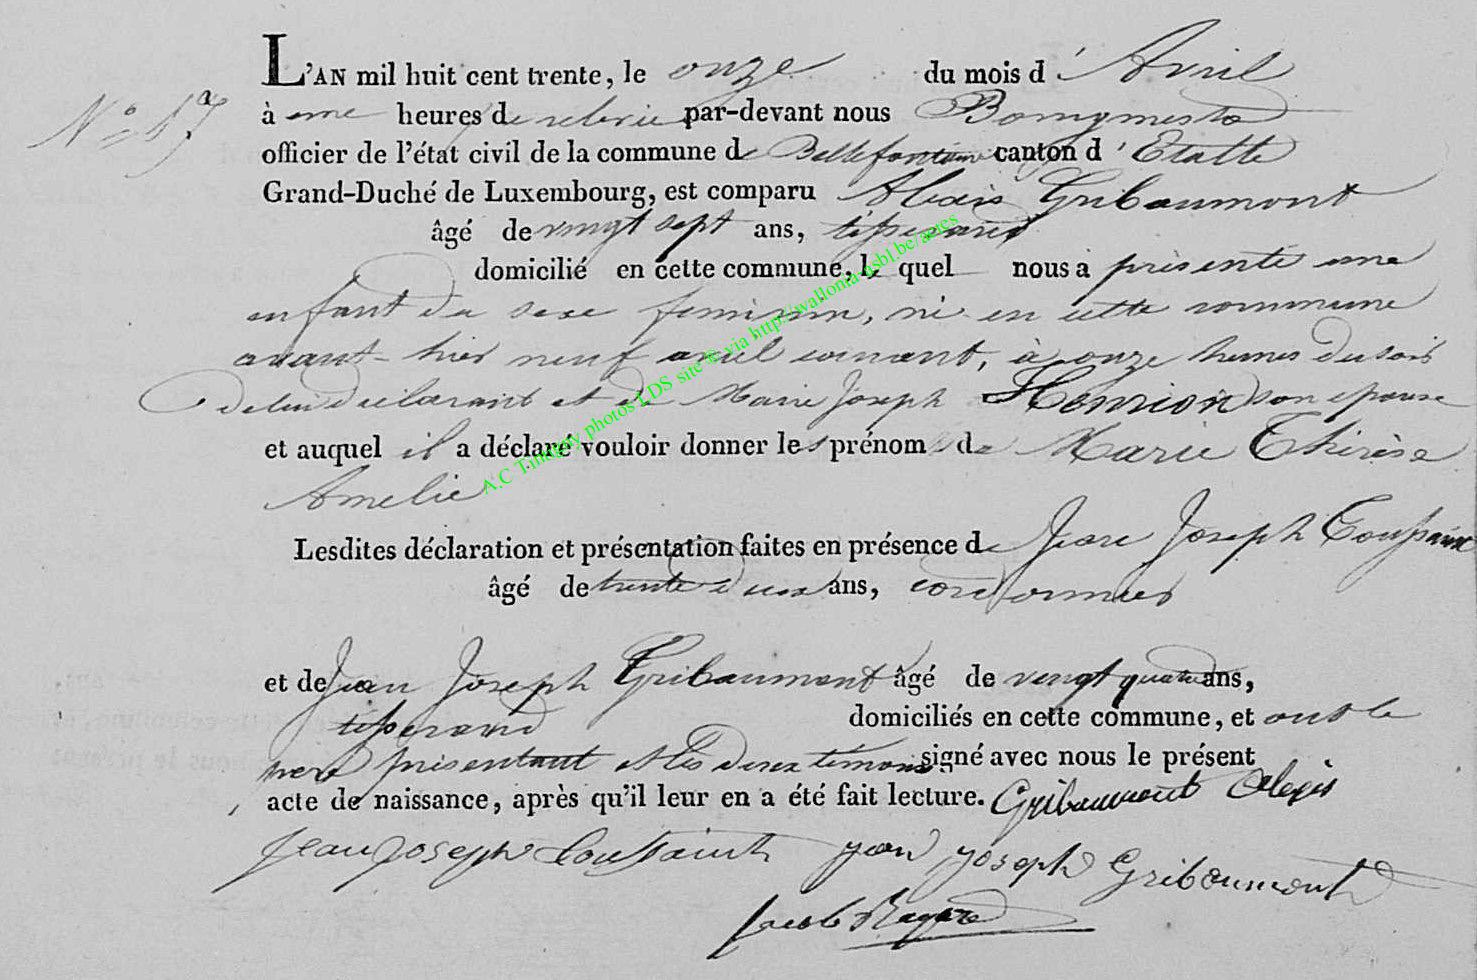 L'AN mil huit cent trente, le onze du mois d'Avril
N° 17
à une heures de relevée par-devant nous Bourgmestre
officier de l'état civil de la commune de Bellefontaine canton d'Etalle
Grand-Duché de Luxembourg, est comparu Alexis Gribaumont
âgé de vingt sept ans, tisserand
domicilié en cette commune, le quel nous a présenté une
enfant du sexe feminin, né en cette commune
avant-hier neuf avril courant, à onze heures du soir
de lui déclarant et de Marie Joseph Henrion son epouse
et auquel il a déclaré vouloir donner les prénom de Marie Thérèse
Amelie
Lesdites déclaration et présentation faites en présence de Jean Joseph Toussaint
âgé de trente deux ans, cordonnier
et de Jean Joseph Gribaumont âgé de vingt quatre ans,
tisserand domiciliés en cette commune, et ont le
pere présentant et les deux témoins signé avec nous le présent
acte de naissance, après qu'il leur en a été fait lecture. Gribaumont Alexis
Jean joseph Toussaint jean joseph Gribaumont
Jacob
A.C Tintigny photos LDS site © via http://wallonia-asbl.be/actes